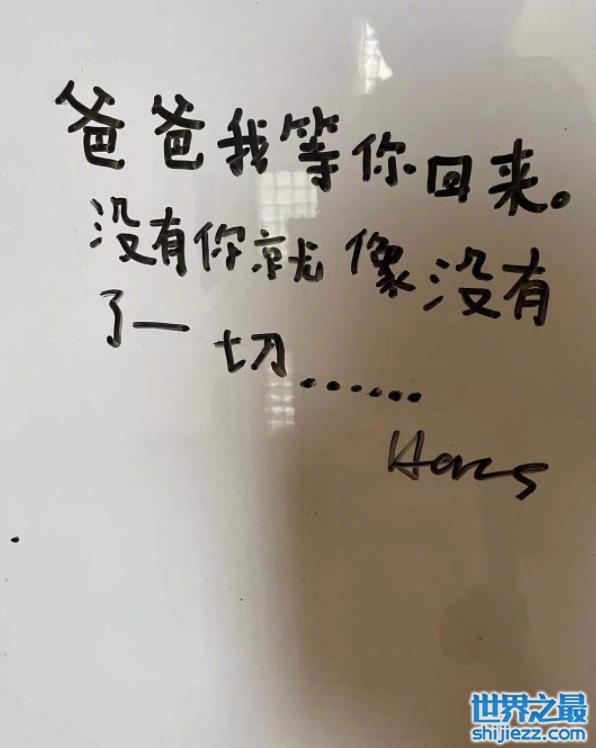 爸爸我等你回来。
没有你就像没有
了一切……
Hans
世界之最
shijiezz.com